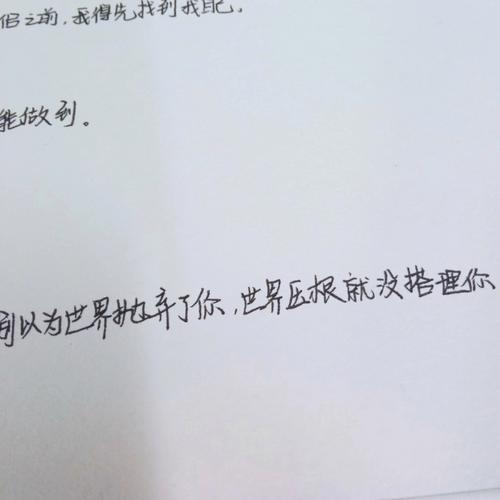 侣之前,我得先找到我自己,
能做到。
别以为世界抛弃了你,世界压根就没搭理你